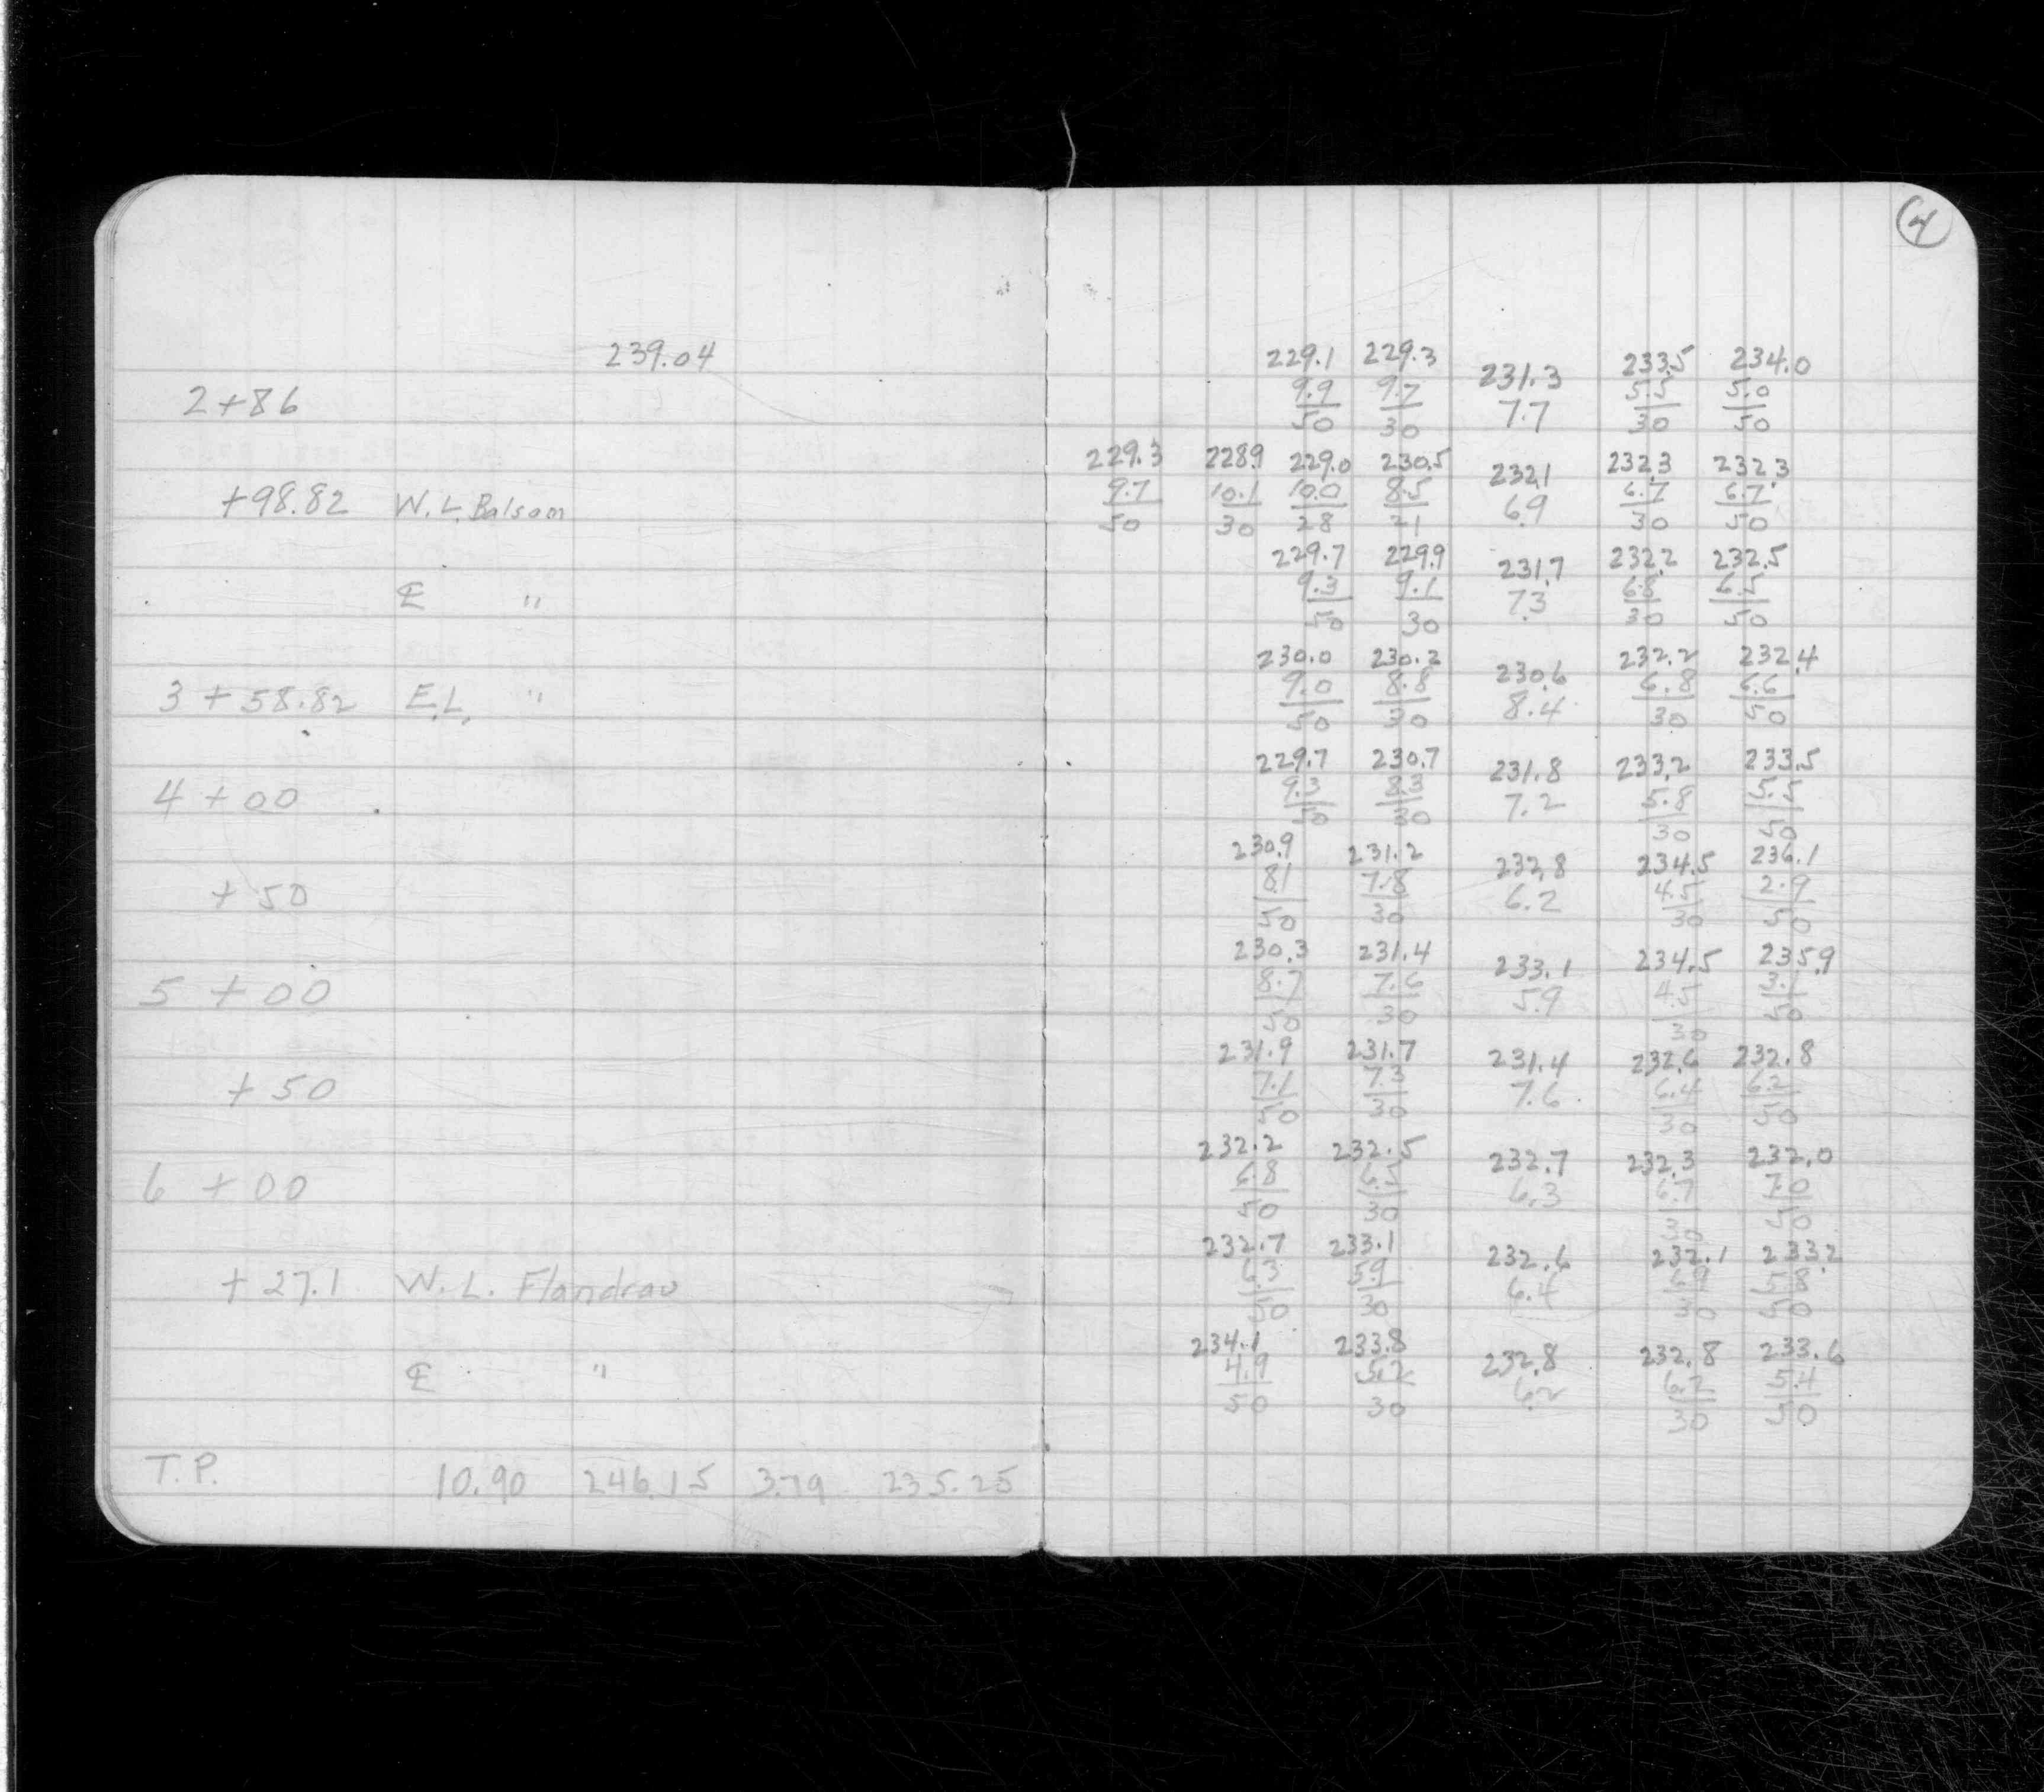 4
239.04
229.1 229.3 231.3 233.5 234.0
2+86 9.9 9.7 7.7 5.5 5.0
50 30 30 50
229.3 228.9 229.0 230.5 232.1 232.3 232.3
+98.82 W.L. Balsam 9.7 10.1 10.0 8.5 6.9 6.7 6.7
50 30 28 21 30 50
229.7 229.9 231.7 232.2 232.5
℄ " 9.3 9.1 7.3 6.8 6.5
50 30 30 50
230.0 230.2 230.6 232.2 232.4
3+58.82 E.L. " 9.0 8.8 8.4 6.8 6.6
50 30 30 50
229.7 230.7 231.8 233.2 233.5
4+00 9.3 8.3 7.2 5.8 5.5
50 30 30 50
230.9 231.2 232.8 234.5 236.1
+50 8.1 7.8 6.2 4.5 2.9
50 30 30 50
230.3 231.4 233.1 234.5 235.9
5+00 8.7 7.6 5.9 4.5 3.1
50 30 30 50
231.9 231.7 231.4 232.6 232.8
+50 7.1 7.3 7.6 6.4 6.2
50 30 30 50
232.2 232.5 232.7 232.3 232.0
6+00 6.8 6.5 6.3 6.7 7.0
50 30 30 50
232.7 233.1 232.6 232.1 233.2
+27.1 W.L. Flandrau 6.3 5.9 6.4 6.9 5.8
50 30 30 50
234.1 233.8 232.8 232.8 233.6
℄ " 4.9 5.2 6.2 6.2 5.4
50 30 30 50
T.P. 10.90 246.15 3.79 235.25